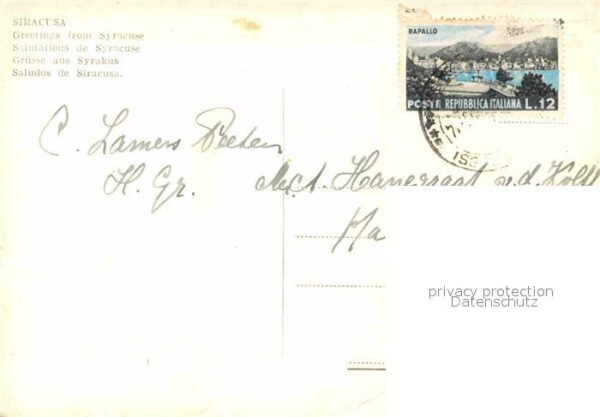 SIRACUSA
Greetings from Syracuse
Salutations de Syracuse
Grüsse aus Syrakus
Saludos de Siracusa.
RAPALLO
POSTE REPUBBLICA ITALIANA L.12
C. Lamers
H. Gr.
v. d.
Ha
privacy protection
Datenschutz